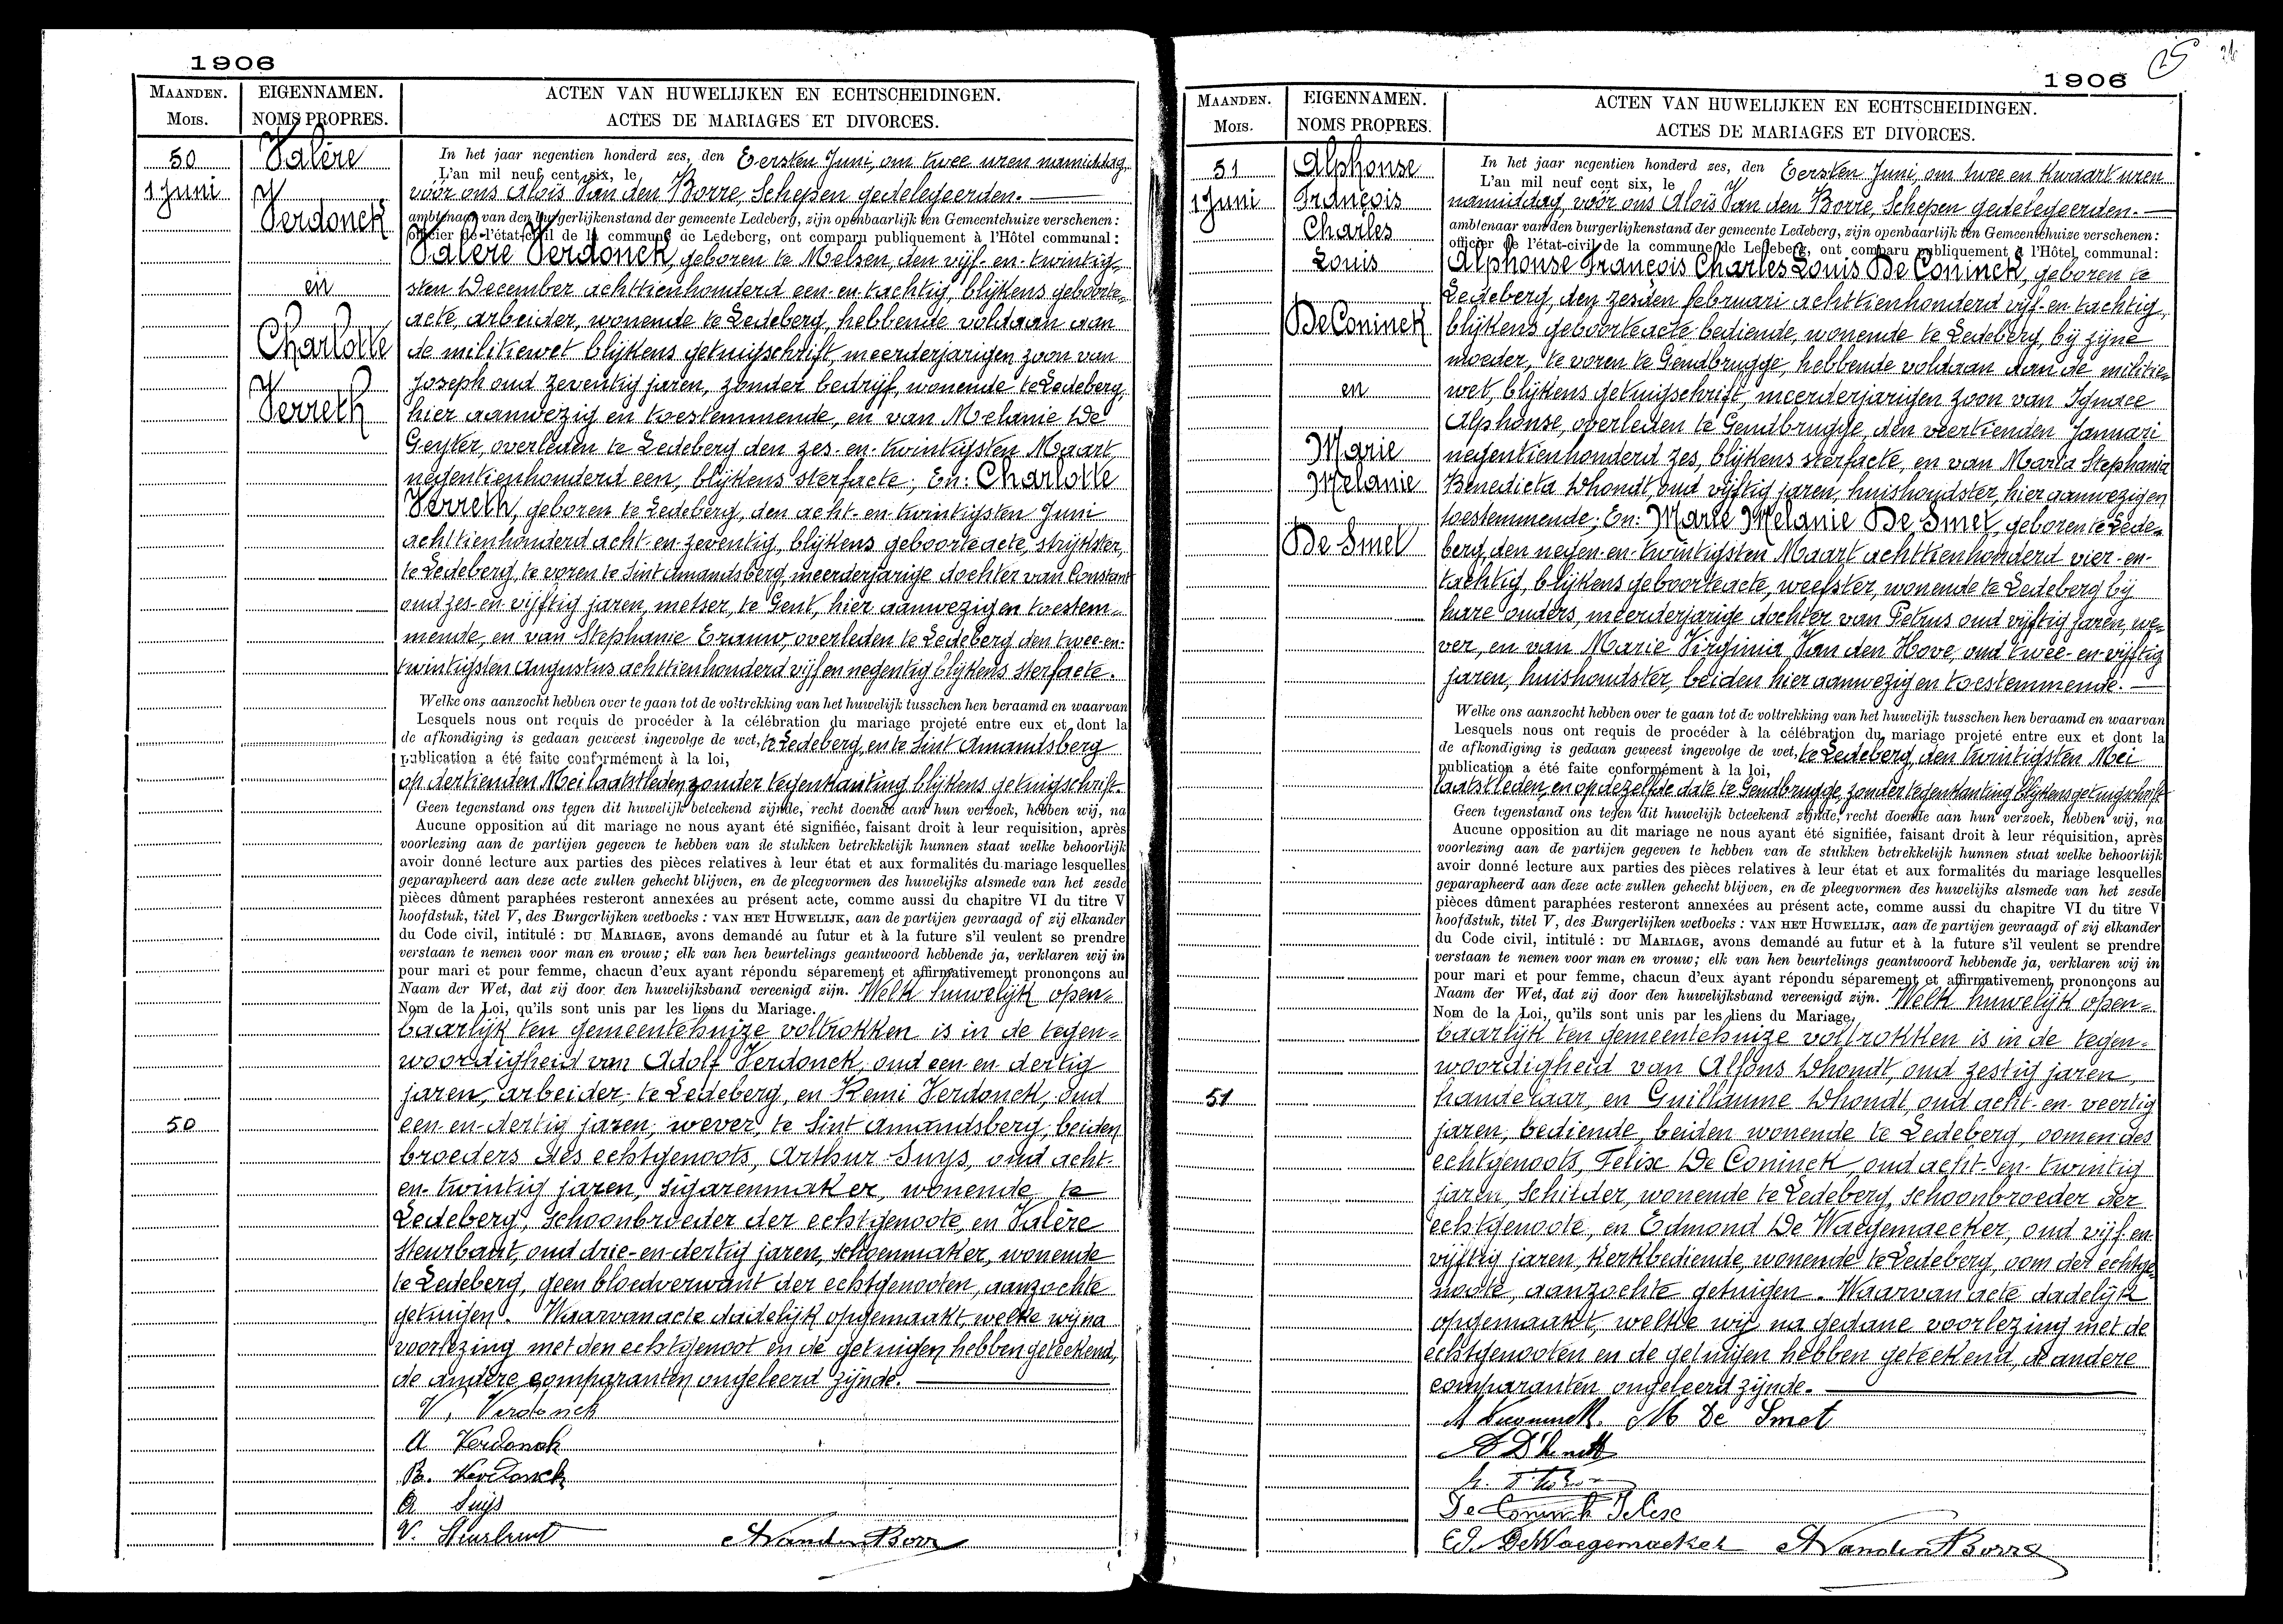 1906
MAANDEN. EIGENNAMEN. ACTEN VAN HUWELIJKEN EN ECHTSCHEIDINGEN.
MOIS. NOMS PROPRES. ACTES DE MARIAGES ET DIVORCES.
50
1 Juni
Valère
Verdonck
en
Charlotte
Verreth
In het jaar negentien honderd zes, den Eersten Juni, om twee uren namiddag,
L'an mil neuf cent six, le
vóór ons Aloïs Van den Borre, Schepen gedelegeerden.
ambtenaar van den burgerlijkenstand der gemeente Ledeberg, zijn openbaarlijk ten Gemeentehuize verschenen:
officier de l'état-civil de la commune de Ledeberg, ont comparu publiquement à l'Hôtel communal:
Valère Verdonck, geboren te Melsen, den vijf-en-twintig-
sten December achttienhonderd een-en-tachtig, blijkens geboorte-
acte, arbeider, wonende te Ledeberg, hebbende voldaan aan
de militiewet blijkens getuigschrift, meerderjarigen zoon van
Joseph oud zeventig jaren, zonder bedrijf, wonende te Ledeberg
hier aanwezig en toestemmende, en van Melanie De
Geyter, overleden te Ledeberg den zes-en-twintigsten Maart
negentienhonderd een, blijkens sterfacte; En: Charlotte
Verreth, geboren te Ledeberg, den acht-en-twintigsten Juni
achttienhonderd acht-en-zeventig, blijkens geboorteacte, strijkster,
te Ledeberg, te voren te Sint Amandsberg, meerderjarige dochter van Constant
oud zes-en-vijftig jaren, metser, te Gent, hier aanwezig en toestem-
mende, en van Stephanie Erauw, overleden te Ledeberg den twee-en-
twintigsten Augustus achttienhonderd vijf en negentig blijkens sterfacte.
Welke ons aanzocht hebben over te gaan tot de voltrekking van het huwelijk tusschen hen beraamd en waarvan
Lesquels nous ont requis de procéder à la célébration du mariage projeté entre eux et dont la
de afkondiging is gedaan geweest ingevolge de wet, te Ledeberg, en te Sint Amandsberg
publication a été faite conformément à la loi,
op dertienden Mei laatstleden, zonder tegenkanting blijkens getuigschrift.
Geen tegenstand ons tegen dit huwelijk beteekend zijnde, recht doende aan hun verzoek, hebben wij, na
Aucune opposition au dit mariage ne nous ayant été signifiée, faisant droit à leur requisition, après
voorlezing aan de partijen gegeven te hebben van de stukken betrekkelijk hunnen staat welke behoorlijk
avoir donné lecture aux parties des pièces relatives à leur état et aux formalités du mariage lesquelles
geparapheerd aan deze acte zullen gehecht blijven, en de pleegvormen des huwelijks alsmede van het zesde
pièces dûment paraphées resteront annexées au présent acte, comme aussi du chapitre VI du titre V
hoofdstuk, titel V, des Burgerlijken wetboeks: VAN HET HUWELIJK, aan de partijen gevraagd of zij elkander
du Code civil, intitulé: DU MARIAGE, avons demandé au futur et à la future s'il veulent se prendre
verstaan te nemen voor man en vrouw; elk van hen beurtelings geantwoord hebbende ja, verklaren wij in
pour mari et pour femme, chacun d'eux ayant répondu séparement et affirmativement prononçons au
Naam der Wet, dat zij door den huwelijksband vereenigd zijn. Welk huwelijk open-
Nom de la Loi, qu'ils sont unis par les liens du Mariage.
baarlijk ten gemeentehuize voltrokken is in de tegen-
woordigheid van Adolf Verdonck, oud een-en-dertig
jaren, arbeider, te Ledeberg, en Remi Verdonck, oud
50
een-en-dertig jaren, wever, te Sint Amandsberg, beiden
broeders des echtgenoots, Arthur Suys, oud acht-
en-twintig jaren, sigarenmaker, wonende te
Ledeberg, schoonbroeder der echtgenoote, en Valère
Steurbaut, oud drie-en-dertig jaren, schoenmaker, wonende
te Ledeberg, geen bloedverwant der echtgenooten, aanzochte
getuigen. Waarvan acte dadelijk opgemaakt, welke wij na
voorlezing met den echtgenoot en de getuigen hebben geteekend,
de andere comparanten ongeleerd zijnde.
V. Verdonck
A Verdonck
R. Verdonck
A Suys
V. Steurbaut A Vanden Borre
25
1906
MAANDEN. EIGENNAMEN. ACTEN VAN HUWELIJKEN EN ECHTSCHEIDINGEN.
MOIS. NOMS PROPRES. ACTES DE MARIAGES ET DIVORCES.
51
1 Juni
Alphonse
François
Charles
Louis
De Coninck
en
Marie
Melanie
De Smet
In het jaar negentien honderd zes, den Eersten Juni, om twee en kwaart uren
L'au mil neuf cent six, le
namiddag, vóór ons Aloïs Van den Borre, Schepen gedelegeerden.
ambtenaar van den burgerlijkenstand der gemeente Ledeberg, zijn openbaarlijk ten Gemeentehuize verschenen:
officier de l'état-civil de la commune de Ledeberg, ont comparu publiquement à l'Hôtel communal:
Alphonse François Charles Louis De Coninck, geboren te
Ledeberg, den zesden februari achttienhonderd vijf-en-tachtig,
blijkens geboorteacte bediende, wonende te Ledeberg, bij zijne
moeder, te voren te Gendbrugge, hebbende voldaan aan de militie-
wet, blijkens getuigschrift, meerderjarigen zoon van Ignace
Alphonse, overleden te Gendbrugge, den veertienden Januari
negentienhonderd zes, blijkens sterfacte, en van Maria Stephania
Benedicta Dhondt, oud vijftig jaren, huishoudster, hier aanwezig en
toestemmende; En: Marie Melanie De Smet, geboren te Lede-
berg, den negen-en-twintigsten Maart achttienhonderd vier-en-
tachtig, blijkens geboorteacte, weefster, wonende te Ledeberg bij
hare ouders, meerderjarige dochter van Petrus oud vijftig jaren, we-
ver, en van Marie Virginia Van den Hove, oud twee-en-vijftig
jaren, huishoudster, beiden hier aanwezig en toestemmende.
Welke ons aanzocht hebben over te gaan tot de voltrekking van het huwelijk tusschen hen beraamd en waarvan
Lesquels nous ont requis de procéder à la célébration du mariage projeté entre eux et dont la
de afkondiging is gedaan geweest ingevolge de wet, te Ledeberg, den twintigsten Mei
publication a été faite conformément à la loi,
laatstleden, en op dezelfde date te Gendbrugge, zonder tegenkanting blijkens getuigschrift.
Geen tegenstand ons tegen dit huwelijk beteekend zijnde, recht doende aan hun verzoek, hebben wij, na
Aucune opposition au dit mariage ne nous ayant été signifiée, faisant droit à leur réquisition, après
voorlezing aan de partijen gegeven te hebben van de stukken betrekkelijk hunnen staat welke behoorlijk
avoir donné lecture aux parties des pièces relatives à leur état et aux formalités du mariage lesquelles
geparapheerd aan deze acte zullen gehecht blijven, en de pleegvormen des huwelijks alsmede van het zesde
pièces dûment paraphées resteront annexées au présent acte, comme aussi du chapitre VI du titre V
hoofdstuk, titel V, des Burgerlijken wetboeks: VAN HET HUWELIJK, aan de partijen gevraagd of zij elkander
du Code civil, intitulé: DU MARIAGE, avons demandé au futur et à la future s'il veulent se prendre
verstaan te nemen voor man en vrouw; elk van hen beurtelings geantwoord hebbende ja, verklaren wij in
pour mari et pour femme, chacun d'eux ayant répondu séparement et affirmativement prononçons au
Naam der Wet, dat zij door den huwelijksband vereenigd zijn. Welk huwelijk open-
Nom de la Loi, qu'ils sont unis par les liens du Mariage.
baarlijk ten gemeentehuize voltrokken is in de tegen-
woordigheid van Alfons Dhondt, oud zestig jaren,
51
handelaar, en Guillaume Dhondt, oud acht-en-veertig
jaren, bediende, beiden wonende te Ledeberg, oomen des
echtgenoots, Felix De Coninck, oud acht-en-twintig
jaren, schilder, wonende te Ledeberg, schoonbroeder der
echtgenoote, en Edmond De Waegemaecker, oud vijf-en-
vijftig jaren, kerkbediende, wonende te Ledeberg, oom der echtge-
noote, aanzochte getuigen. Waarvan acte dadelijk
opgemaakt, welke wij na gedane voorlezing met de
echtgenooten en de getuigen hebben geteekend, de andere
comparanten ongeleerd zijnde.
M De Smet
De Coninck Felix
Ed. DeWaegemaeker A Vanden Borre